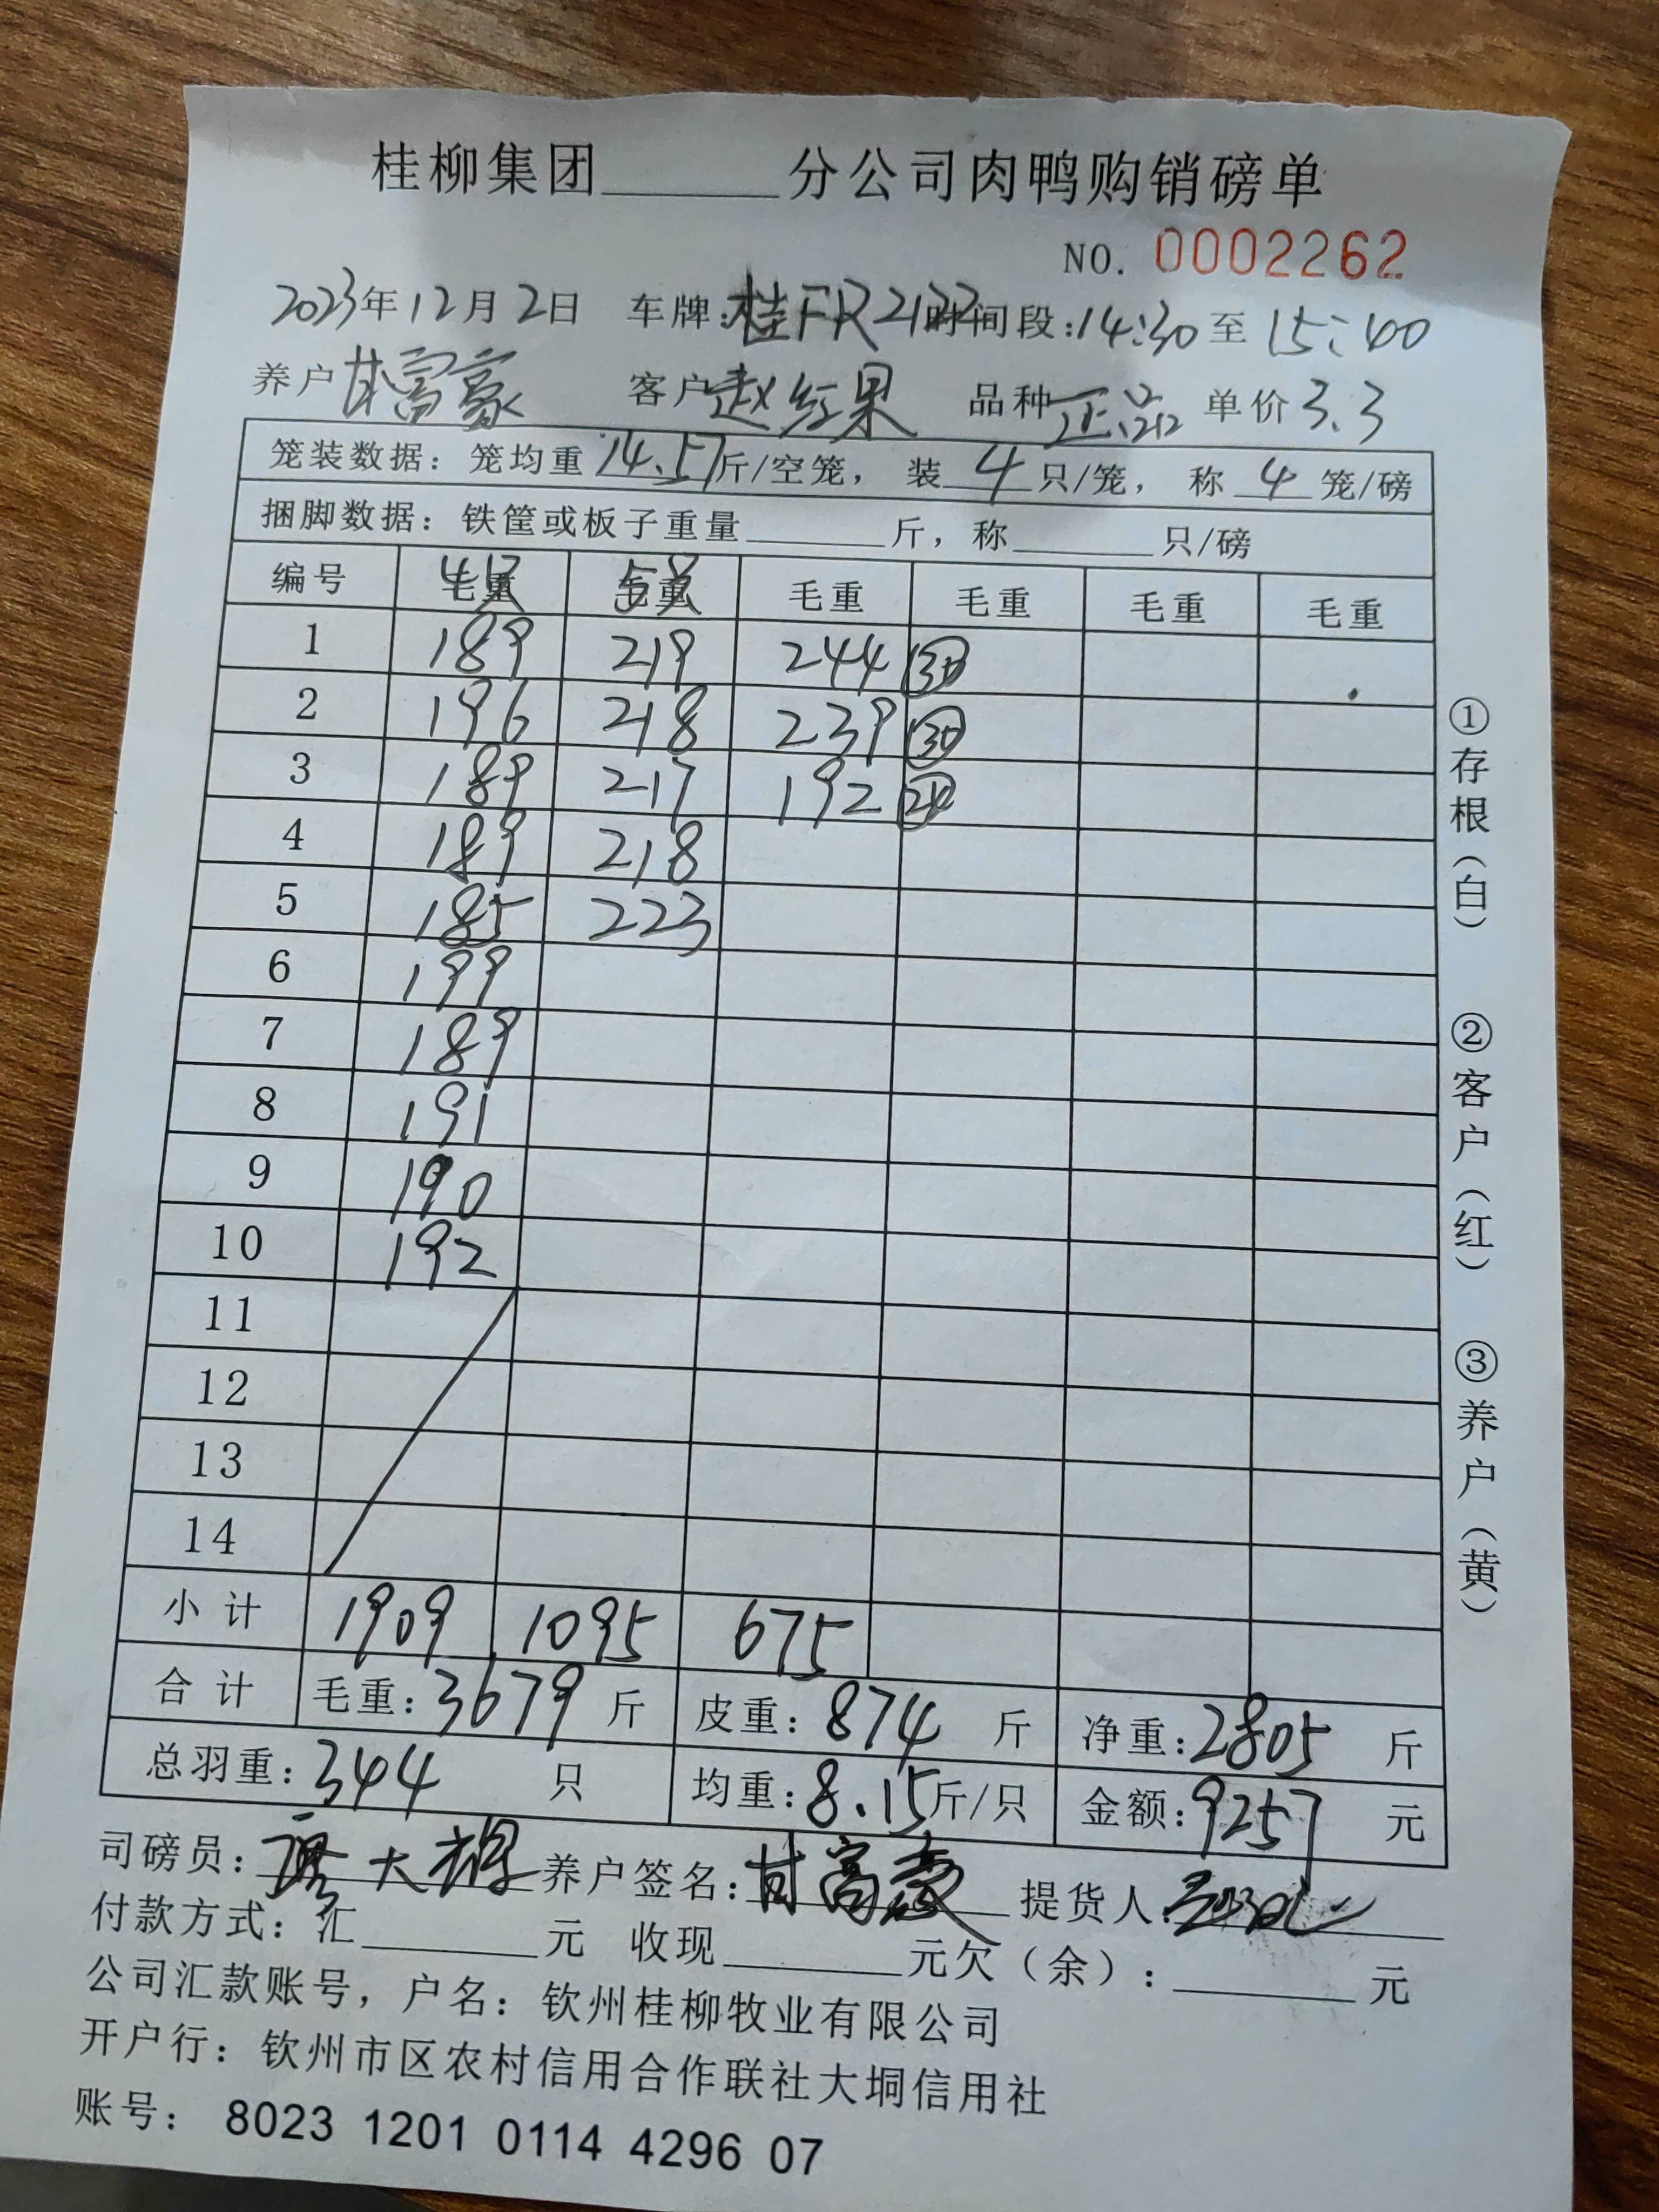 桂柳集团______分公司肉鸭购销磅单
NO. 0002262
2023年12月2日 车牌:桂FR2122时间段:14:30至15:40
养户甘富豪 客户赵红果 品种正品 单价3.3
笼装数据:笼均重14.57斤/空笼, 装4只/笼, 称4笼/磅
捆脚数据:铁筐或板子重量______斤,称______只/磅
编号 毛重 毛重 毛重 毛重 毛重 毛重
1 189 219 244
2 196 218 239
3 189 217 192
4 189 218
5 185 223
6 199
7 189
8 191
9 190
10 192
11
12
13
14
小计 1909 1095 675
合计 毛重:3679斤 皮重:874斤 净重:2805斤
总羽重:344只 均重:8.15斤/只 金额:9257元
司磅员:廖大 养户签名:甘富豪 提货人:
付款方式:汇______元 收现______元欠(余):______元
公司汇款账号,户名:钦州桂柳牧业有限公司
开户行:钦州市区农村信用合作联社大垌信用社
账号: 8023 1201 0114 4296 07
①存根(白) ②客户(红) ③养户(黄)